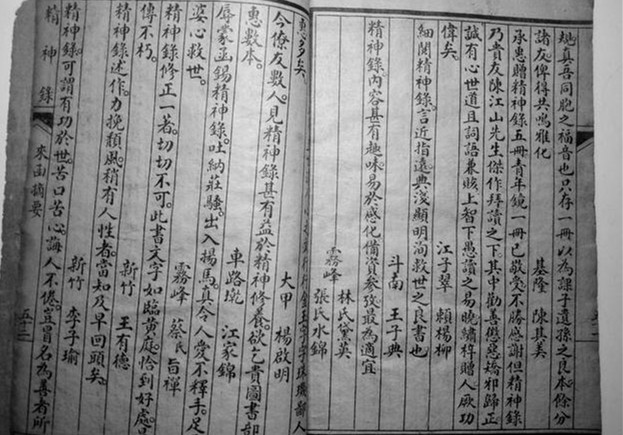 諸友俾得共鳴雅化
基隆 陳其美
承惠贈精神錄五冊青年鏡一冊已敬受不勝感謝但精神錄
乃貴友陳江山先生傑作拜讀之下。其中勸善懲惡矯邪歸正
誠有心世道且詞語兼賅上智下愚讀之易曉繡梓贈人厥功
偉矣。
江子翠 賴楊柳
細閱精神錄。言近指遠典淺顯明洵救世之良書也
斗南 王子典
精神錄。內容甚有趣味易於感化備資參攷最為適宜
霧峰 林氏黛吳
張氏水錦
惠多矣。
今僚友數人見精神錄甚有益於精神修養。欲乞貴圖書部
惠數本。
大甲 楊啟明
辱蒙函錫精神錄。吐納莊騷出入揚馬。真令人愛不釋手。足
婆心救世。
車路墘 江家錦
精神錄修正一著。切切不可。此書文字如臨黃庭。恰到好處。
傳不朽。
霧峰 蔡氏旨禪
精神錄述作。力挽頹風。稍有人性者。當知及早回頭矣。
新竹 王有德
精神錄。可謂有功於世。苦口苦心。誨人不倦。豈冒名為善者所
新竹 李子瑜
精神錄 來函摘要 五十二